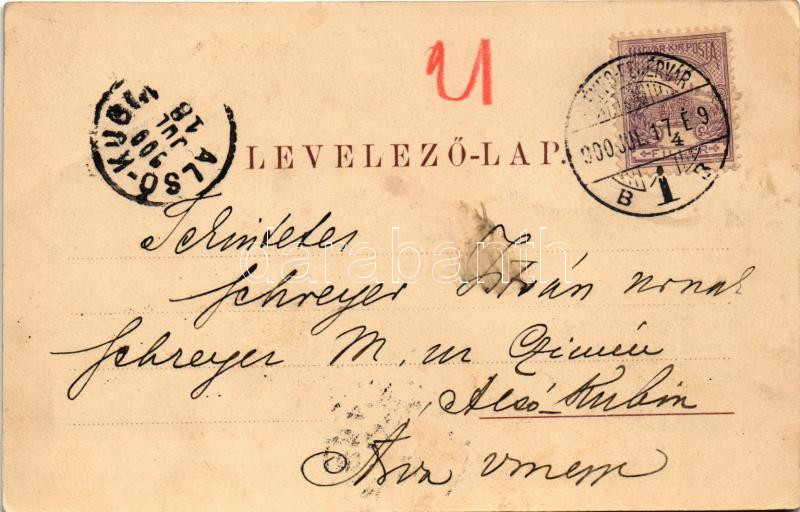 MAGYAR KIR. POSTA
900 JUL 17 É 9
4
B 1 B
FILLÉR
ALSÓ-KUBIN
900
JUL
18
LEVELEZŐ-LAP.
Tekintetes
Schreyer István urnak
Schreyer M. ur Czimén
Alsó-Kubin
Árva vmegye
darabanth